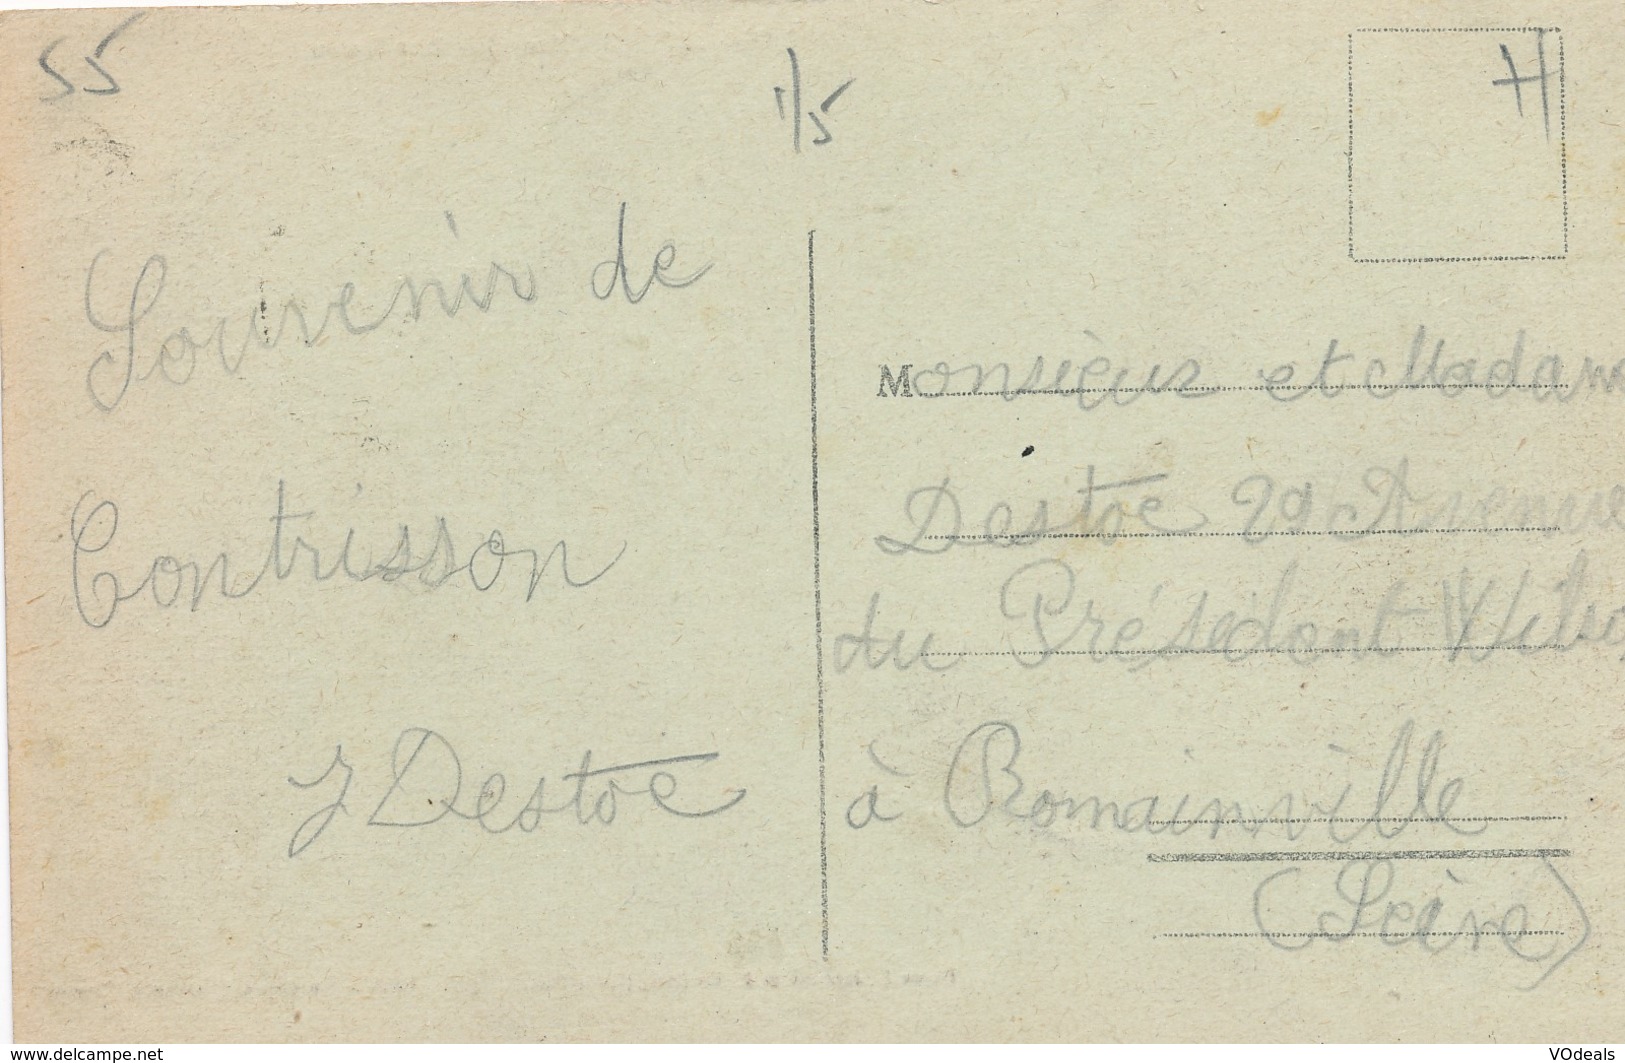 55
1/5
H
Souvenir de
Contrisson
J Destoe
Monsieur et Madame
Destoe 29 Avenue
du Présedont Wilso
à Romainville
(Seine)
www.delcampe.net
VOdeals